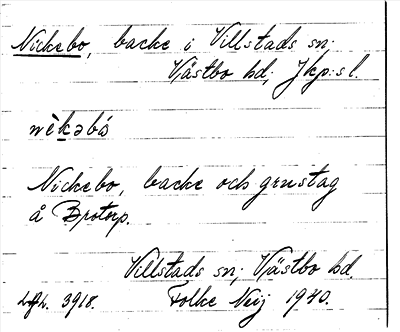 Nickebo, backe i Villstads sn;
Västbo hd; Jkp:s l.
nèkəbó
Nickebo, backe och grustag
å Brotorp.
Villstads sn; Västbo hd.
3918. Folke Neij 1940.